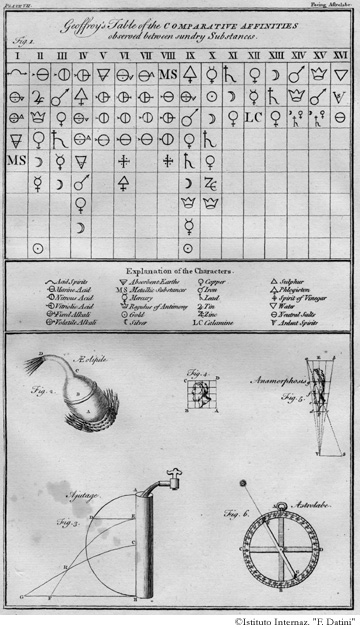 PLATE VII.
Facing Astrolabe.
Geoffroy's Table of the COMPARATIVE AFFINITIES
observed between sundry Substances.
Fig. 1.
I II III IV V VI VII VIII IX X XI XII XIII XIV XV XVI
MS
LC
MS
Explanation of the Characters.
Acid Spirits
Absorbent Earths
Copper
Sulphur
MS Metallic Substances
Iron
Phlogiston
Nitrous Acid
Mercury
Lead
Spirit of Vinegar
Vitriolic Acid
Regulus of Antimony
Tin
Water
Fixed Alkali
Gold
Zinc
Neutral Salts
Volatile Alkali
Silver
LC Calamine
Ardent Spirits
Æolipile
Fig. 2.
Fig. 4.
Anamorphosis
Fig. 5.
Ajutage
Fig. 3.
Fig. 6.
Astrolabe
©Istituto Internaz. "F. Datini"